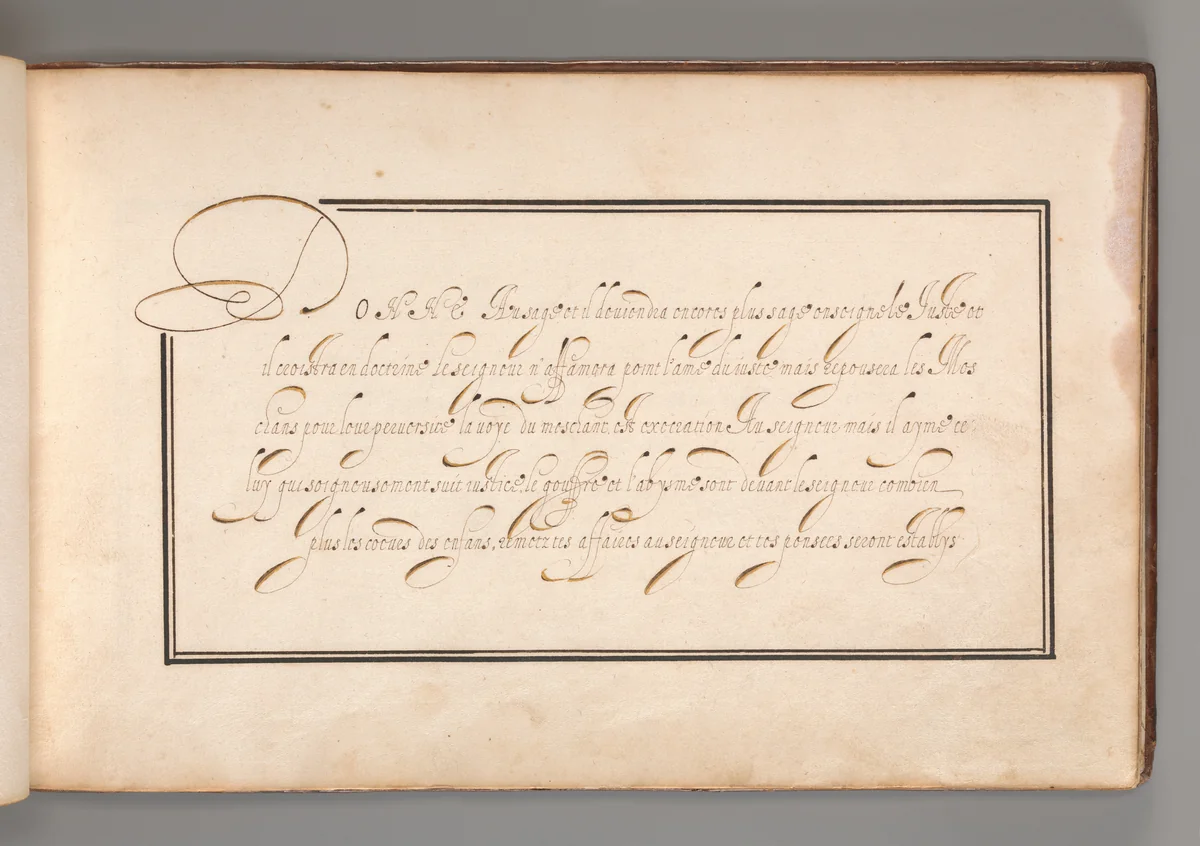 DONNE Au sage et il deuiendra encores plus sage enseigne le Juste et
il croistra en doctrine le seigneur n'affamera point l'ame du iuste mais repousera les Mes
chans pour leur peruersite la voye du meschant est execration Au seigneur mais il ayme ce
luy qui soigneusement suit iustice, le gouffre et l'abysme sont deuant le seigneur combien
plus les coeurs des enfans, remetz tes affaires au seigneur et tes pensees seront establys